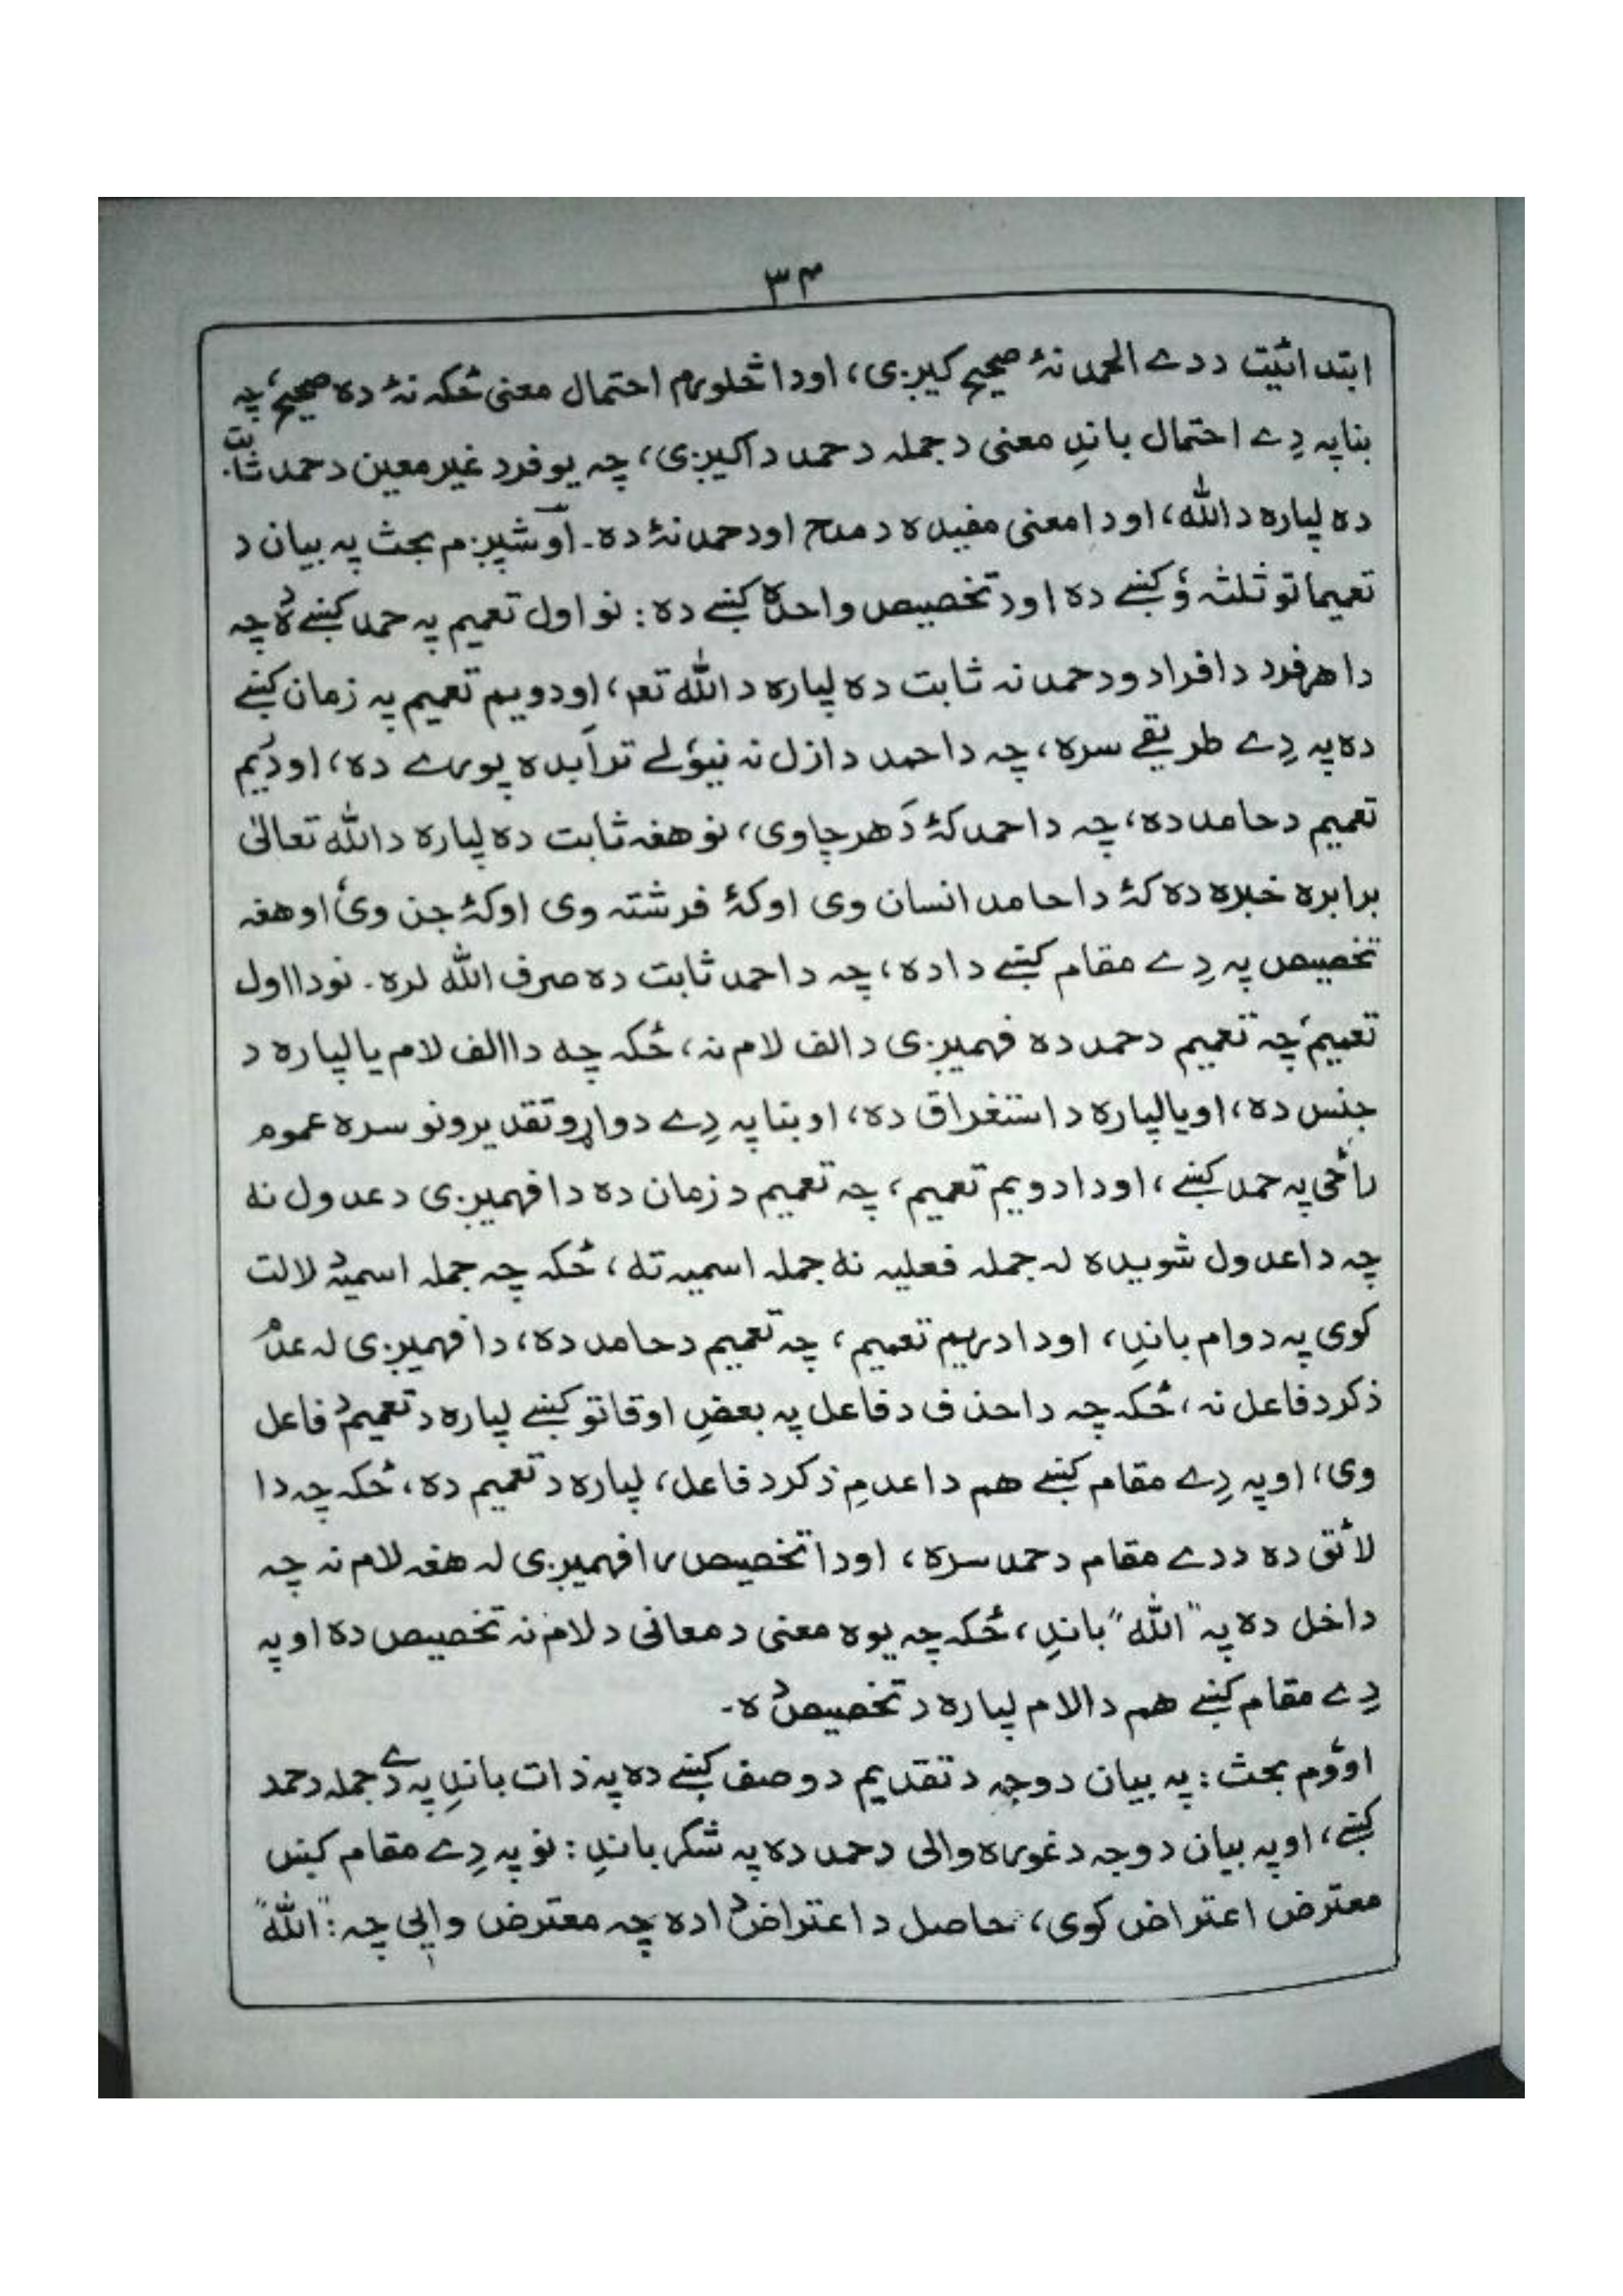 ۳۴
ابتدائیت ددے الحمد نۀ صحیح کیږی، اودا څلورم احتمال معنی ځکه نۀ ده صحیح، چہ
بناپہ دِے احتمال باندِ معنی دجملہ دحمد داکیږی، چہ یوفرد غیرمعین دحمد ثابت
ده لپاره دالله، اودا معنی مفیده دمدح اودحمد نۀ ده۔ اوشپږم بحث پہ بیان د
تعیماتو ثلثہ ؤ کښے ده اود تخصیص واحدہ کښے ده: نواول تعمیم پہ حمد کښے دُہ چہ
داهرفرد دافراد ودحمد نہ ثابت ده لپاره دالله تعہ، اودویم تعمیم پہ زمان کښے
ده پہ دِے طریقے سره، چہ داحمد دازل نہ نیؤلے ترأبده پورے ده، اودریم
تعمیم دحامد ده، چہ داحمد کۀ دَهرچاوی، نوهغہ ثابت ده لپاره دالله تعالیٰ
برابره خبره ده کۀ داحامد انسان وی اوکۀ فرشتہ وی اوکۀ جن وی، اوهغہ
تخصیص پہ دِے مقام کښے داده، چہ داحمد ثابت ده صرف الله لره۔ نودااول
تعمیم، چہ تعمیم دحمد ده فهمیږی دالف لام نہ، ځکہ چہ داالف لام یالپاره د
جنس ده، اویالپاره داستغراق ده، اوبناپہ دِے دواړوتقدیرونو سره عموم
راځی پہ حمد کښے، اودادویم تعمیم، چہ تعمیم دزمان ده دافهمیږی دعدول نہ
چہ داعدول شویده لہ جملہ فعلیہ نہ جملہ اسمیہ تہ، ځکہ چہ جملہ اسمیہ دلالت
کوی پہ دوام باندِ، اودادریم تعمیم، چہ تعمیم دحامد ده، دافهمیږی لہ عدم
ذکردفاعل نہ، ځکہ چہ داحذف دفاعل پہ بعضِ اوقاتو کښے لپاره دتعمیم دفاعل
وی، اوپہ دِے مقام کښے هم داعدمِ ذکردفاعل، لپاره دتعمیم ده، ځکہ چہ دا
لائق ده ددے مقام دحمد سره، اوداتخصیص رافهمیږی لہ هغہ لام نہ چہ
داخل ده پہ "الله" باندِ، ځکہ چہ یوه معنی دمعانی دلام نہ تخصیص ده اوپہ
دِے مقام کښے هم دالام لپاره دتخصیص دہ۔
اوؤم بحث: پہ بیان دوجہ دتقدیم دوصف کښے ده پہ ذات باندِ پہ دِے جملہ دحمد
کښے، اوپہ بیان دوجہ دغوره والی دحمد ده پہ شکر باندِ: نوپہ دِے مقام کښں
معترض اعتراض کوی، حاصل داعتراض داده چہ معترض وایي چہ: "الله"